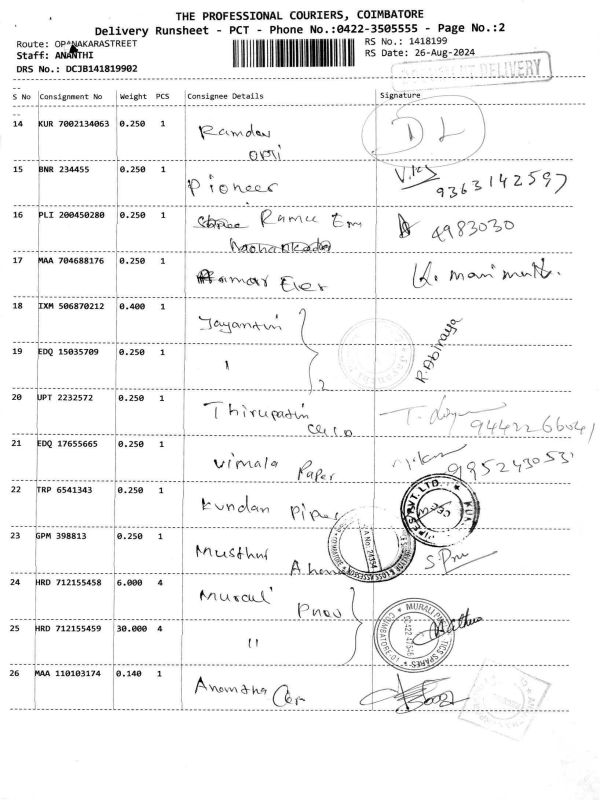 THE PROFESSIONAL COURIERS, COIMBATORE
Delivery Runsheet - PCT - Phone No.:0422-3505555 - Page No.:2
Route: OPANAKARASTREET
RS No.: 1418199
Staff: ANANTHI
RS Date: 26-Aug-2024
DRS No.: DCJB141819902
DELIVERY
S No Consignment No Weight PCS Consignee Details Signature
14 KUR 7002134063 0.250 1 Ramdev DL
15 BNR 234455 0.250 1 Pioneer 9363142597
16 PLI 200450280 0.250 1 Ramee 4983030
17 MAA 704688176 0.250 1 K. marimuth.
18 IXM 506870212 0.400 1 Jayanthi
R. Abiraya
19 EDQ 15035709 0.250 1 "
2
20 UPT 2232572 0.250 1 Thirupathi 9442266041
21 EDQ 17655665 0.250 1 Vimala Paper 9952430531
22 TRP 6541343 0.250 1 Kundan Pipes
PVT. LTD.
23 GPM 398813 0.250 1 Musthur
24 HRD 712155458 6.000 4 Murali
25 HRD 712155459 30.000 4 "
MURALI
26 MAA 110103174 0.140 1 Anantha